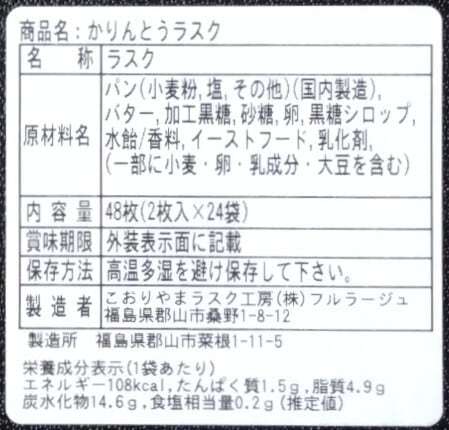 商品名：かりんとうラスク
名　称　ラスク
原材料名　パン(小麦粉,塩,その他)(国内製造),
バター,加工黒糖,砂糖,卵,黒糖シロップ,
水飴/香料,イーストフード,乳化剤,
(一部に小麦・卵・乳成分・大豆を含む)
内容量　48枚(2枚入×24袋)
賞味期限　外装表示面に記載
保存方法　高温多湿を避け保存して下さい。
製造者　こおりやまラスク工房(株)フルラージュ
福島県郡山市桑野1-8-12
製造所　福島県郡山市菜根1-11-5
栄養成分表示(1袋あたり)
エネルギー108kcal,たんぱく質1.5g,脂質4.9g
炭水化物14.6g,食塩相当量0.2g(推定値)